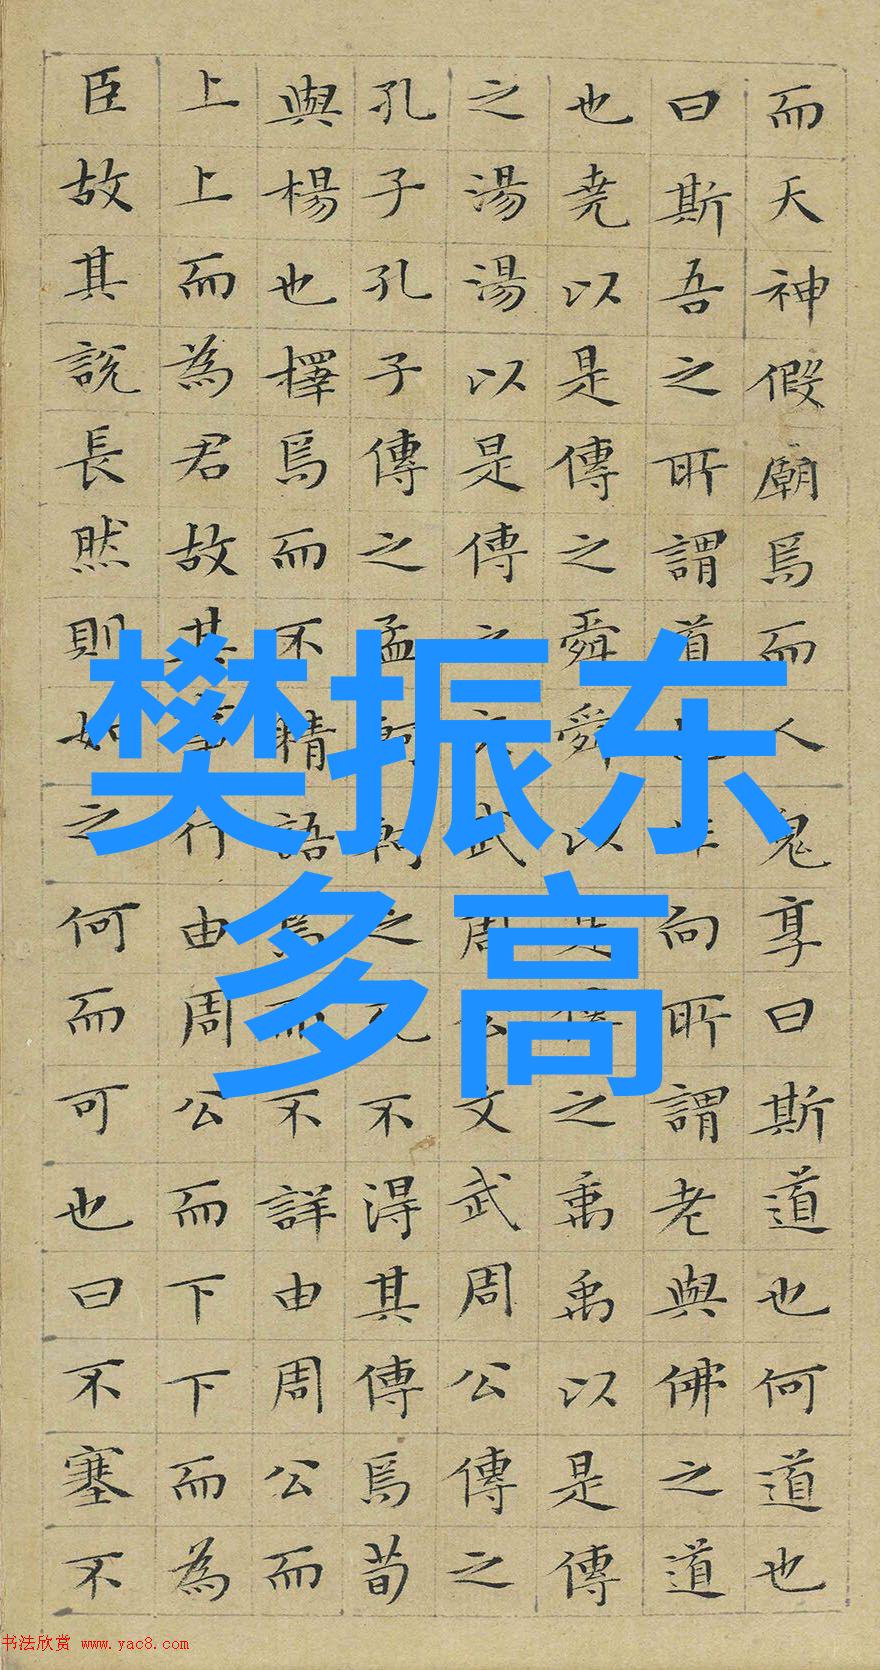 而天神假廟焉而人鬼享曰斯道也何道也
曰斯吾之所謂道也非向所謂老與佛之道
也堯以是傳之舜舜以是傳之禹禹以是傳
之湯湯以是傳之文武周公文武周公傳之
孔子孔子傳之孟軻軻之死不得其傳焉荀
與楊也擇焉而不精語焉而不詳由周公而
上上而為君故其事行由周公而下下而為
臣故其說長然則如之何而可也曰不塞不
樊振东
多高
书法欣赏 www.yac8.com